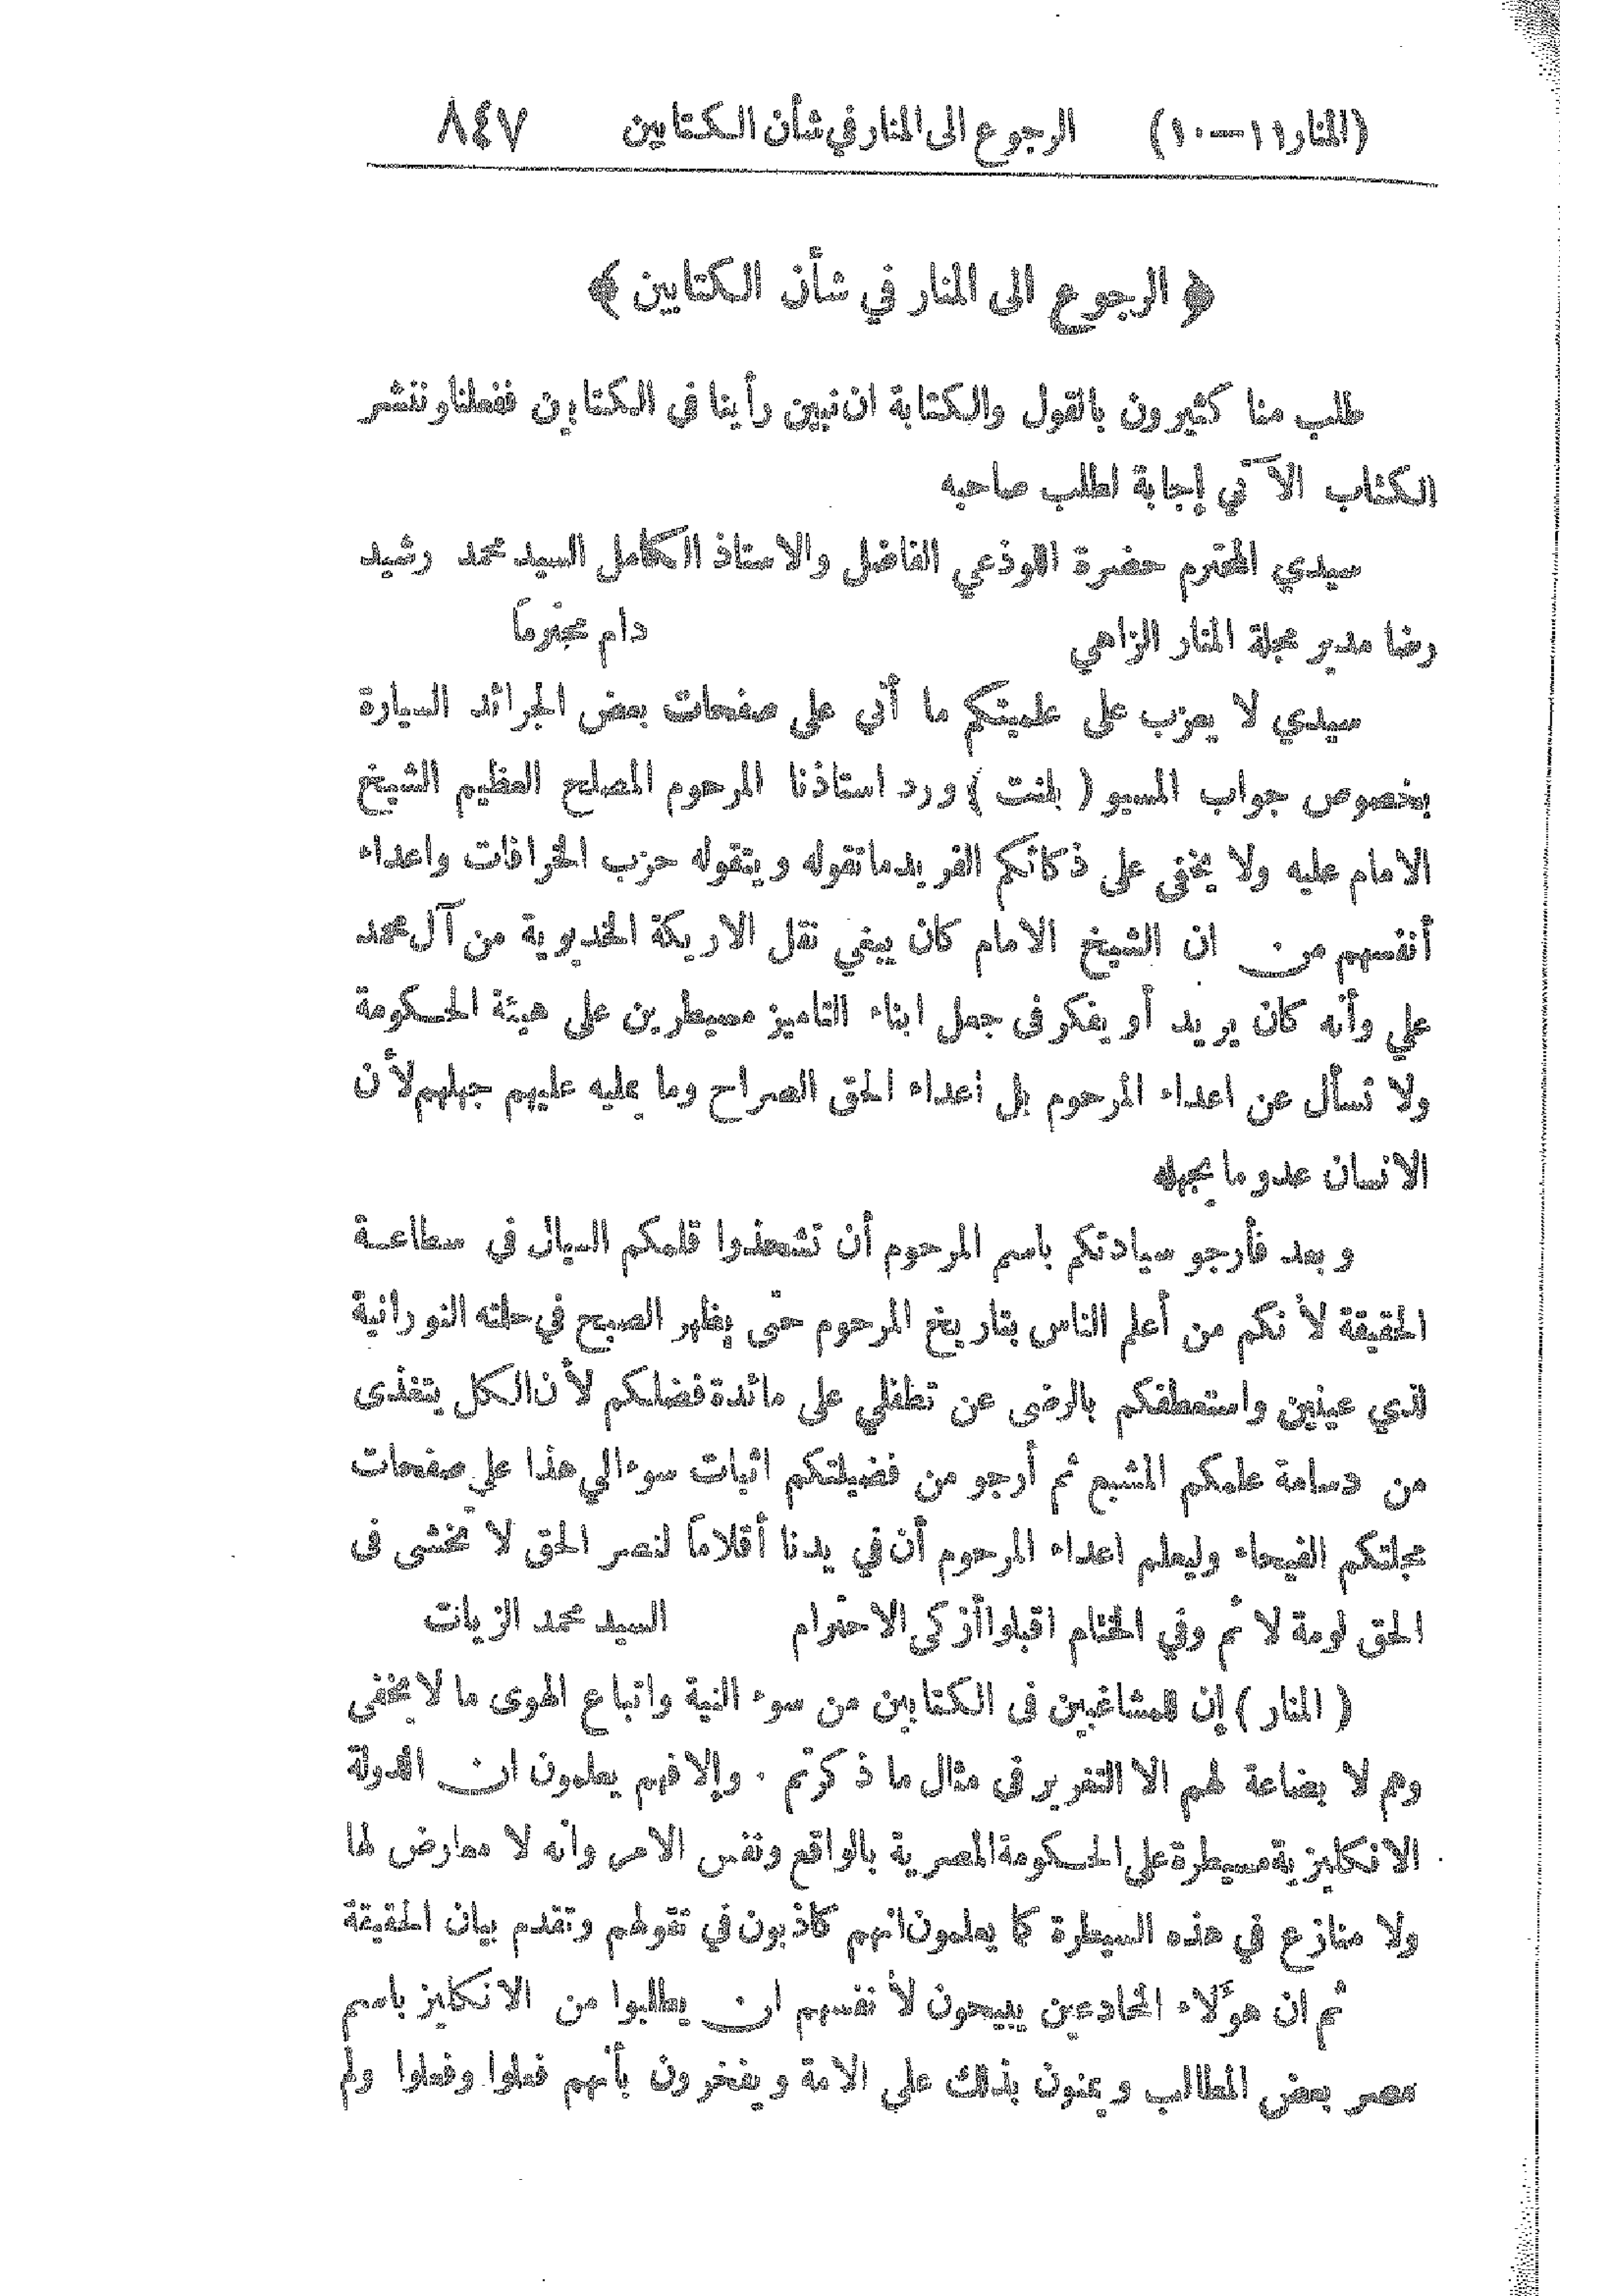 (المنار ١١ – ١٠) الرجوع الى المنار في شأن الكتابين ٨٤٧
﴿ الرجوع الى المنار في شأن الكتابين ﴾
طلب منا كثيرون بالقول والكتابة ان نبين رأينا في الكتابين ففعلنا وننشر
الكتاب الآتي إجابة لطلب صاحبه
سيدي المحترم حضرة اللوذعي الفاضل والاستاذ الكامل السيد محمد رشيد
رضا مدير مجلة المنار الزاهي دام محترماً
سيدي لا يعزب على علميتكم ما أتى على صفحات بعض الجرائد السيارة
بخصوص جواب المسيو ( بلنت ) ورد استاذنا المرحوم المصلح العظيم الشيخ
الامام عليه ولا يخفى على ذكائكم الفريد ما تقوله ويتقوله حزب الخرافات واعداء
أنفسهم من ان الشيخ الامام كان يبغي نقل الاريكة الخديوية من آل محمد
علي وأنه كان يريد أو يفكر في جعل ابناء التاميز مسيطرين على هيئة الحكومة
ولا تسأل عن اعداء المرحوم بل أعداء الحق الصراح وما يمليه عليهم جهلهم لأن
الانسان عدو ما يجهله
وبعد فأرجو سيادتكم باسم المرحوم أن تشحذوا قلمكم السيال في سطاعة
الحقيقة لأنكم من أعلم الناس بتاريخ المرحوم حتى يظهر الصبح في حلته النورانية
لذي عينين واستعطفكم بالرضى عن تطفلي على مائدة فضلكم لأن الكل يتغذى
من دسامة علمكم المشبع ثم أرجو من فضيلتكم اثبات سوءالي هذا على صفحات
مجلتكم الفيحاء وليعلم اعداء المرحوم أن في يدنا أقلاماً لنصر الحق لا تخشى في
الحق لومة لائم وفي الختام اقبلوا أزكى الاحترام السيد محمد الزيات
( المنار ) إن للمشاغبين في الكتابين من سوء النية واتباع الهوى ما لا يخفى
وهم لا بضاعة لهم الا التغرير في مثال ما ذكرتم . وإلا فهم يعلمون ان الدولة
الانكليزية مسيطرة على الحكومة المصرية بالواقع ونفس الامر وانه لا معارض لها
ولا منازع في هذه السيطرة كما يعلمون انهم كاذبون في تقولهم وتقدم بيان الحقيقة
ثم ان هؤلاء الخادعين يبيحون لأنفسهم ان يطلبوا من الانكليز باسم
مصر بعض المطالب ويمنون بذلك على الامة ويفخرون بأنهم فعلوا وفعلوا ولم